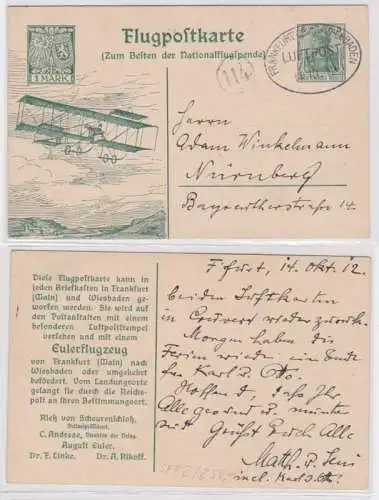 Flugpostkarte
(Zum Besten der Nationalflugspende)
1 MARK
114
FRANKFURT
LUFTPOST
Herrn
Adam Winkelmann
Nürnberg
Bayreutherstraße 14.
Diese Flugpostkarte kann in
jeden Briefkasten in Frankfurt
(Main) und Wiesbaden ge-
worfen werden. Sie wird auf
den Postanstalten mit einem
besonderen Luftpoststempel
versehen und mit einem
Eulerflugzeug
von Frankfurt (Main) nach
Wiesbaden oder umgekehrt
befördert. Vom Landungsorte
gelangt sie durch die Reichs-
post an ihren Bestimmungsort.
Rieß von Scheurnschloß,
Polizeipräsident.
C. Andreae,
August Euler.
Dr. F. Linke. Dr. A. Rikoff.
Ffurt, 14. Okt. 12.
beiden Luftkarten
in
Morgen haben die
Ferien wieder ein Ende
für Karl u. Otto.
Hoffend, dass Ihr
Alle gesund u. munter
seid Grüßt Euch Alle
Math. u.
incl. Karl u. Otto!